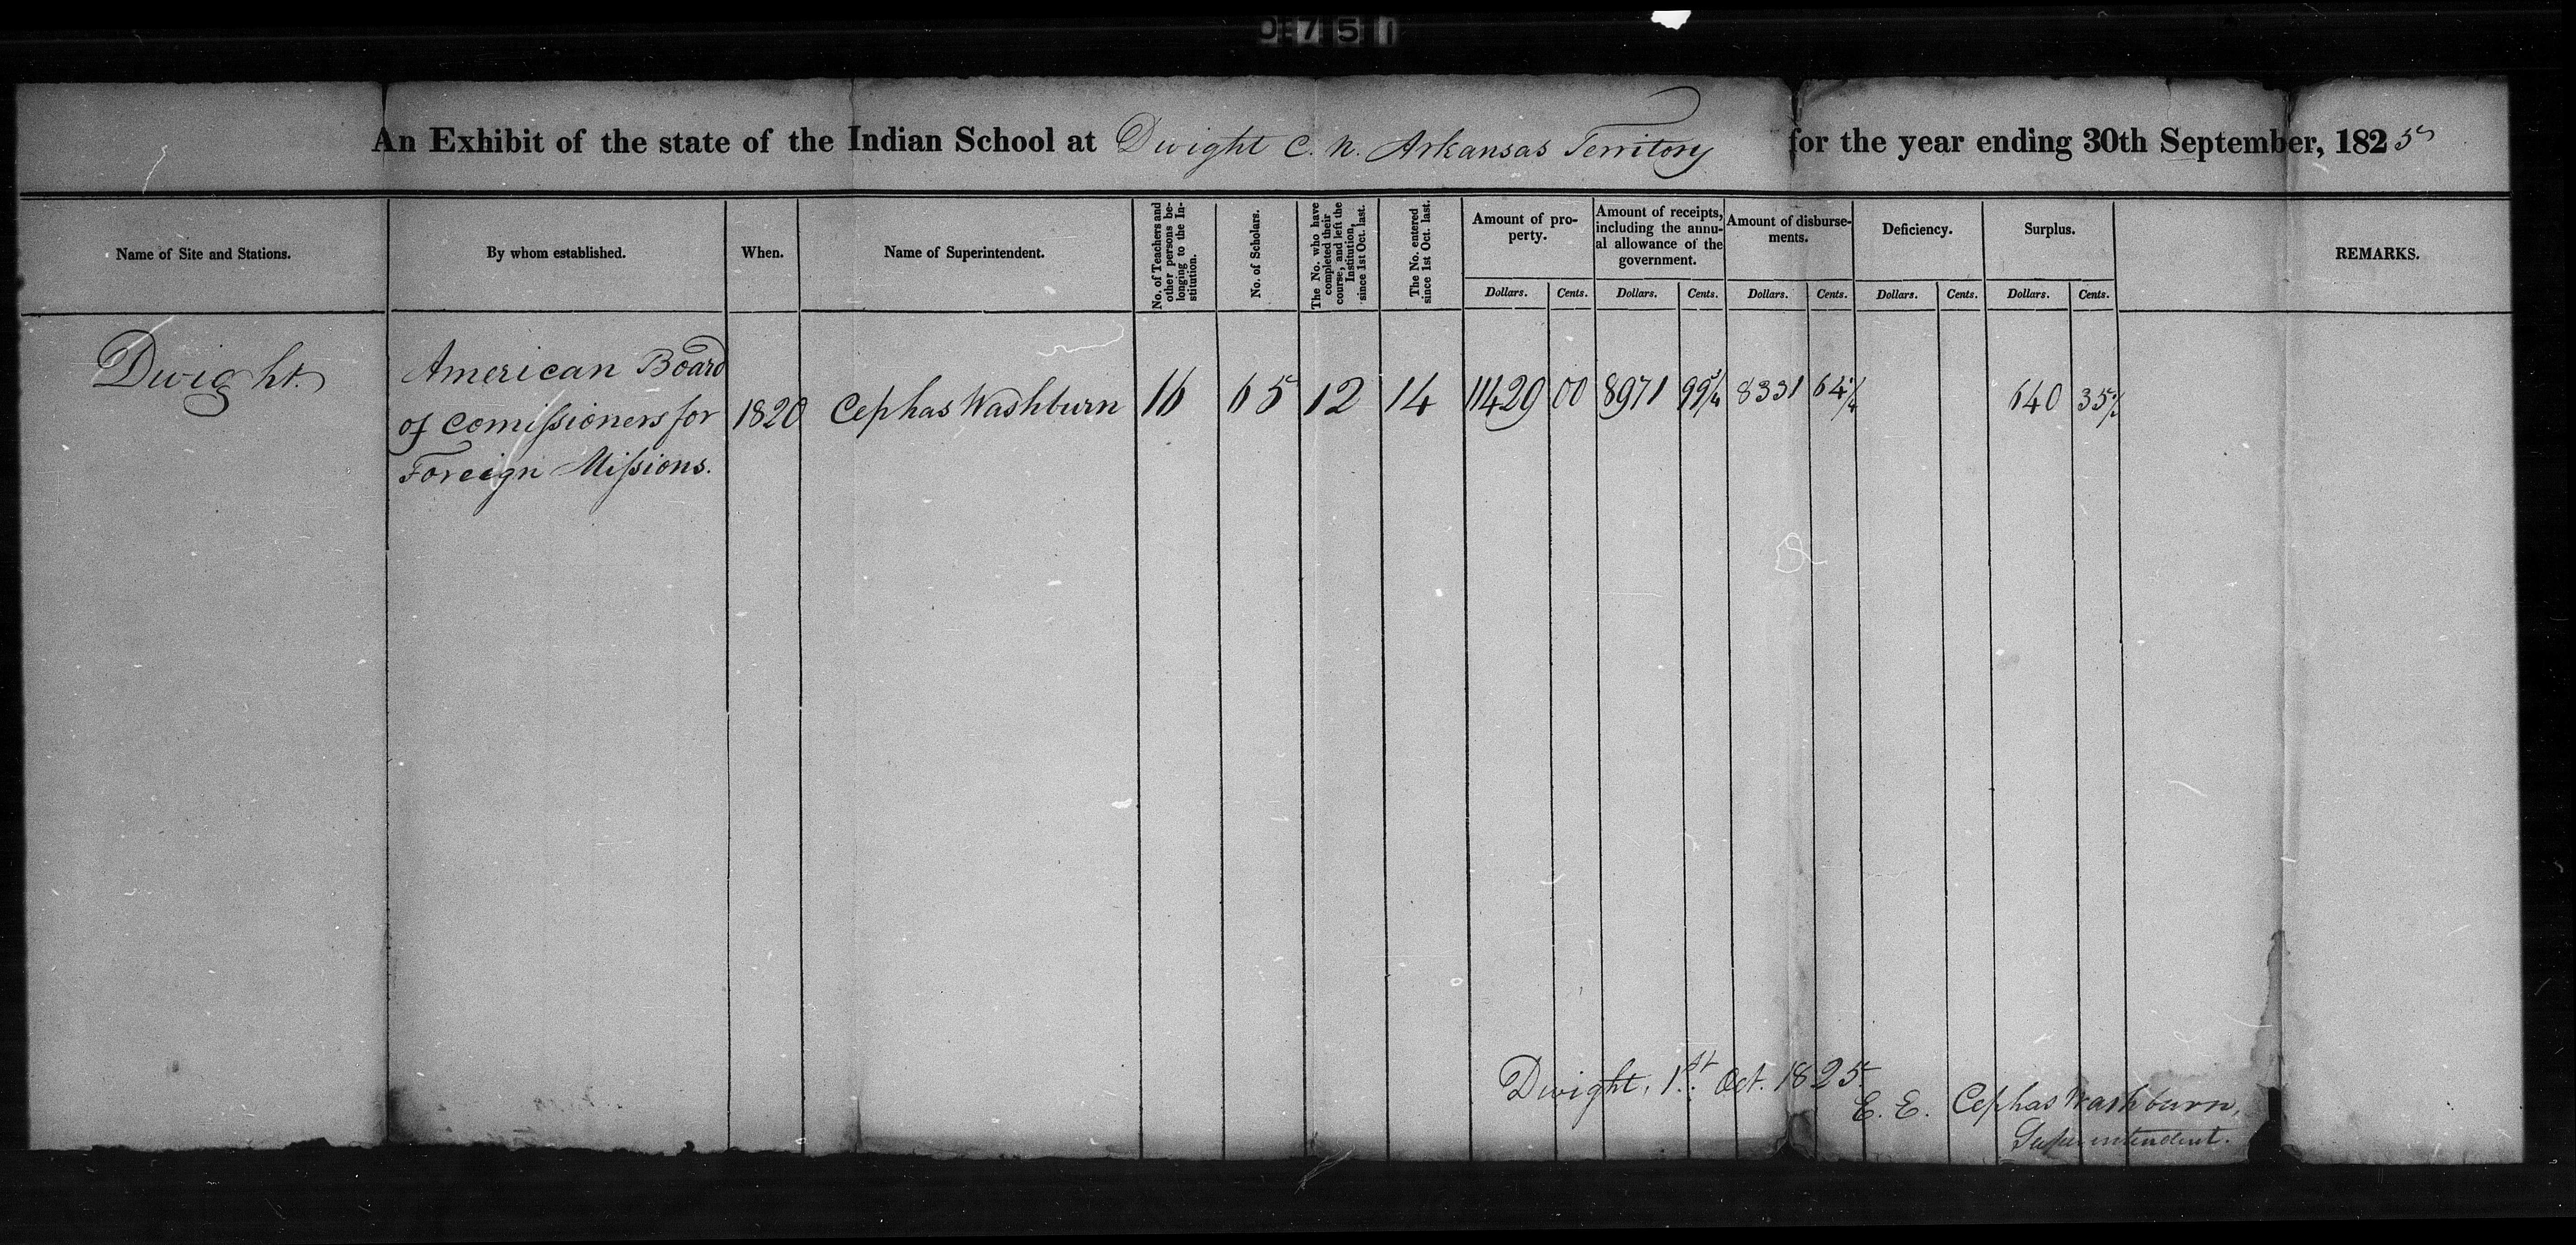 0751
An Exhibit of the state of the Indian School at Dwight C. N. Arkansas Territory for the year ending 30th September, 1825
Name of Site and Stations.
By whom established.
When.
Name of Superintendent.
No. of Teachers and
other persons be-
longing to the In-
stitution.
No. of Scholars.
The No. who have
completed their
course, and left the
Institution,
since 1st Oct. last.
The No. entered
since 1st Oct. last.
Amount of pro-
perty.
Dollars. Cents.
Amount of receipts,
including the annu-
al allowance of the
government.
Dollars. Cents.
Amount of disburse-
ments.
Dollars. Cents.
Deficiency.
Dollars. Cents.
Surplus.
Dollars. Cents.
REMARKS.
Dwight.
American Board
of Comissioners for
Foreign Missions.
1820
Cephas Washburn
16
65
12
14
11429 00
8971 99 3/4
8331 64 1/4
640 35 1/2
Dwight, 1st Oct. 1825
E. E. Cephas Washburn,
Superintendent.